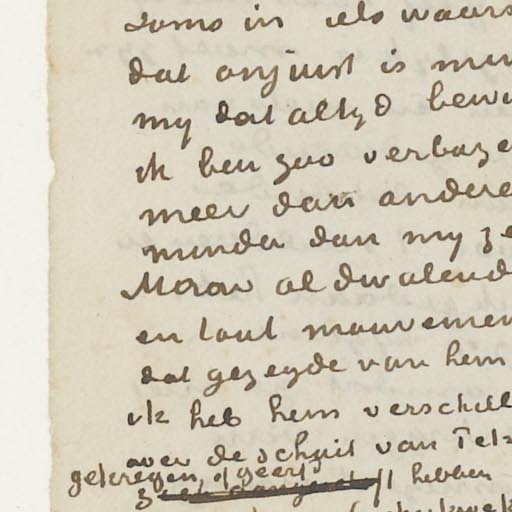 soms in iets waars
dat onjuist is mun
my dat altyd bewu
ik ben zoo verbaze
meer dan andere
minder dan my ze
Maar al dwalend
en tout mouvemen
dat gezegde van hem
ik heb hem verschill
over de schuit van Tets
gekregen, of geeft
hebben